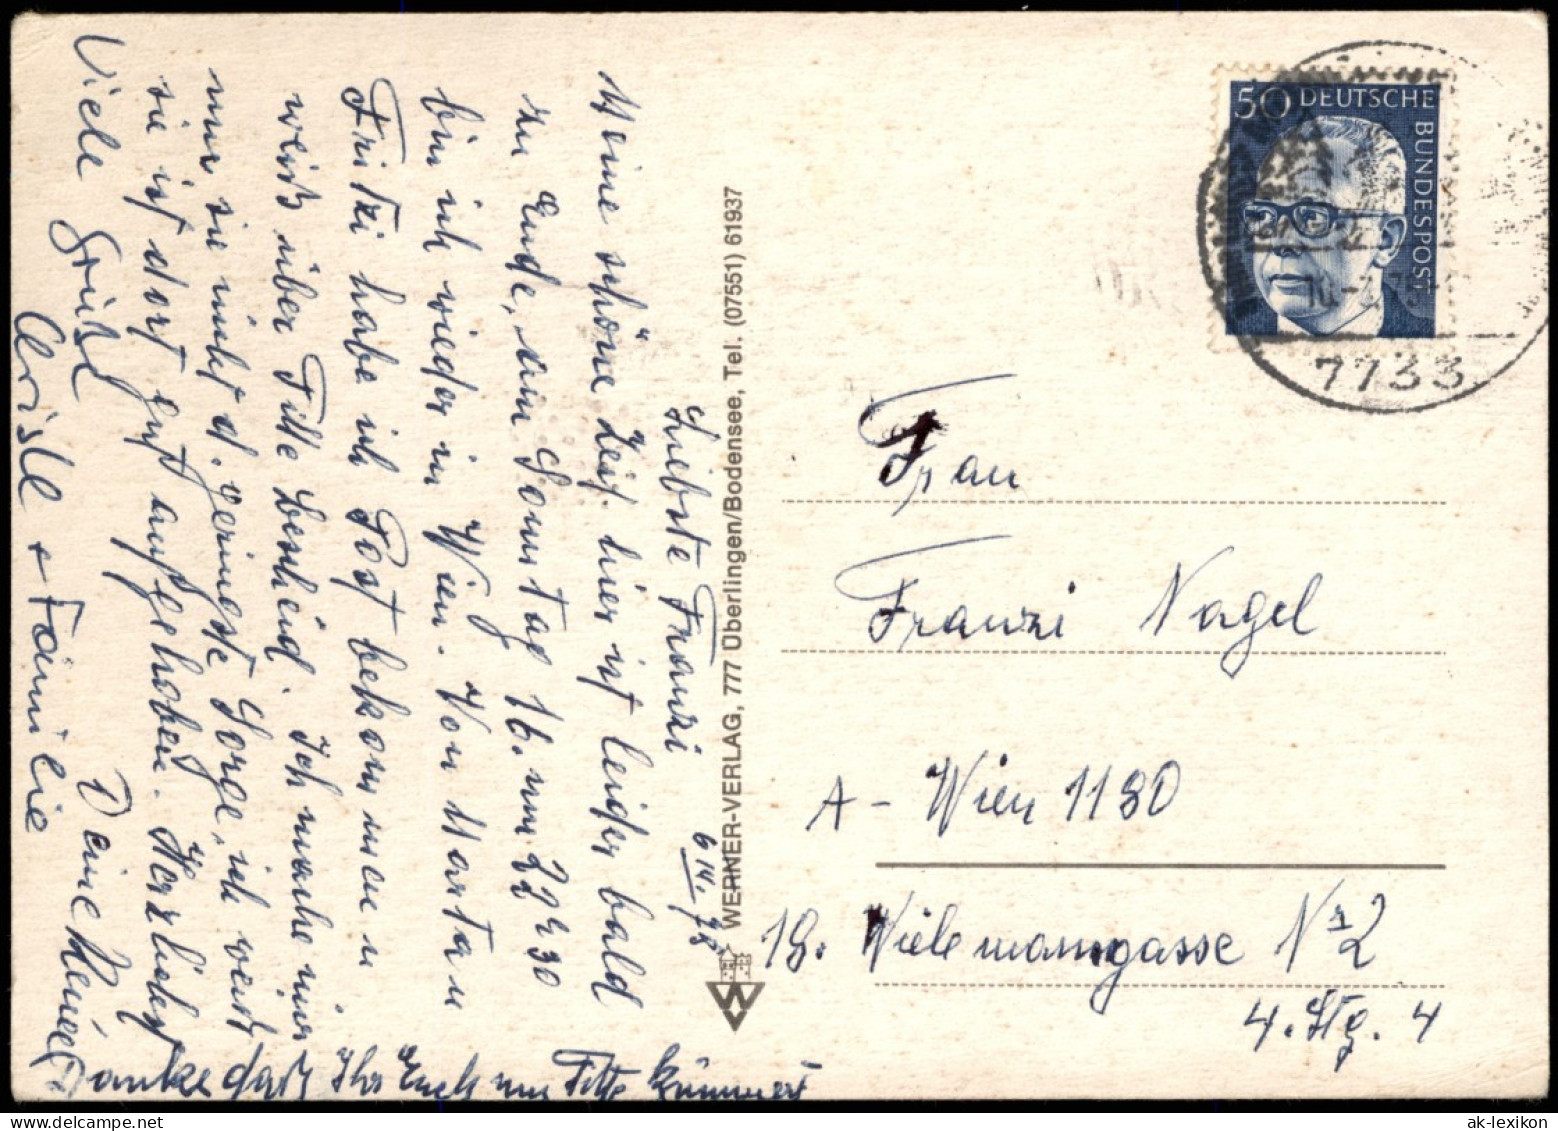 6.IV.75
Liebste Franzi
Meine schöne Zeit hier ist leider bald
zu Ende, am Samstag 16. um 22h30
bin ich wieder in Wien. Von Martau
Fritzi habe ich Post bekommen
weiß über Titte bescheid. Ich mache mir
um sie nicht d. geringste Sorge, ich weiß
sie ist dort gut aufgehoben. Herzlichst
Viele Grüße Deine
Christl + Familie
Danke daß Ihr Euch um Titte kümmert
WERNER-VERLAG, 777 Überlingen/Bodensee, Tel. (07551) 61937
50 DEUTSCHE
BUNDESPOST
7733
Frau
Franzi Nagel
A - Wien 1180
18. Wielemansgasse Nr 2
4. Stg. 4
ak-lexikon.com